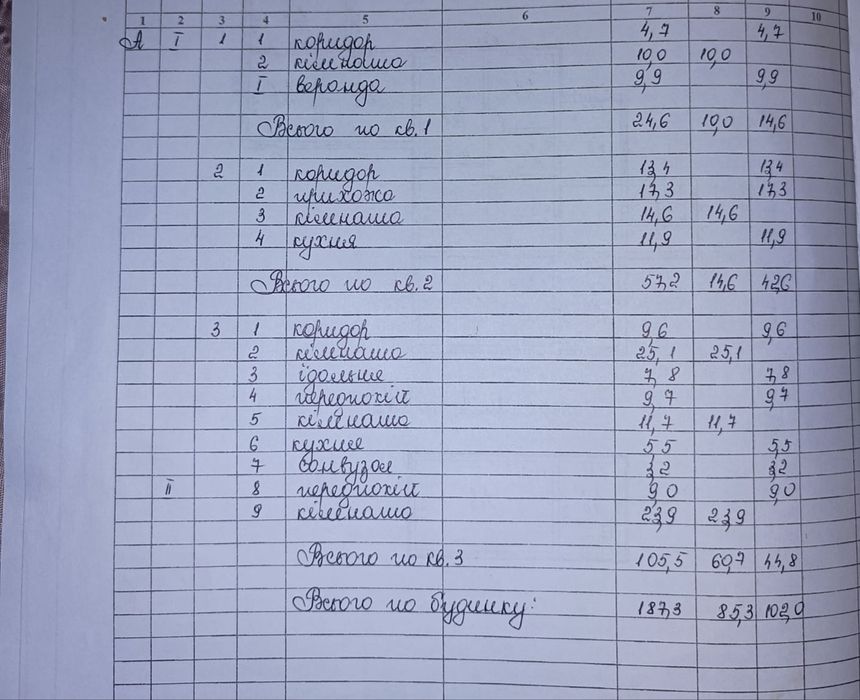 1 2 3 4 5 6 7 8 9 10
А I 1 1 коридор 4,7 4,7
2 кімната 10,0 10,0
I веранда 9,9 9,9
Всього по кв.1 24,6 10,0 14,6
2 1 коридор 13,4 13,4
2 прихожа 17,3 17,3
3 кімната 14,6 14,6
4 кухня 11,9 11,9
Всього по кв.2 57,2 14,6 42,6
3 1 коридор 9,6 9,6
2 кімната 25,1 25,1
3 їдальня 7,8 7,8
4 передпокій 9,7 9,7
5 кімната 11,7 11,7
6 кухня 5,5 5,5
7 санвузол 3,2 3,2
II 8 передпокій 9,0 9,0
9 кімната 23,9 23,9
Всього по кв.3 105,5 60,7 44,8
Всього по будинку: 187,3 85,3 102,0